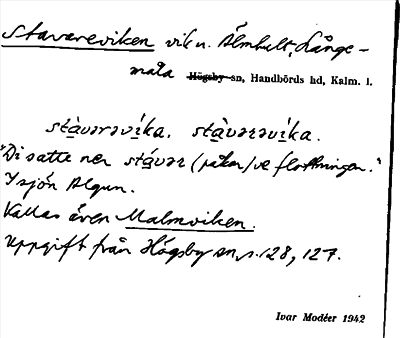 Stavareviken vik n. Älmhult, Långe-
måla Högsby sn, Handbörds hd, Kalm. l.
stàvərəvíka. stàvərəvíka.
"Di satte ner stávər (pålar) ve flottningen."
I sjön Algun.
Kallas även Malmviken.
Uppgift från Högsby sn, s. 128, 127.
Ivar Modéer 1942